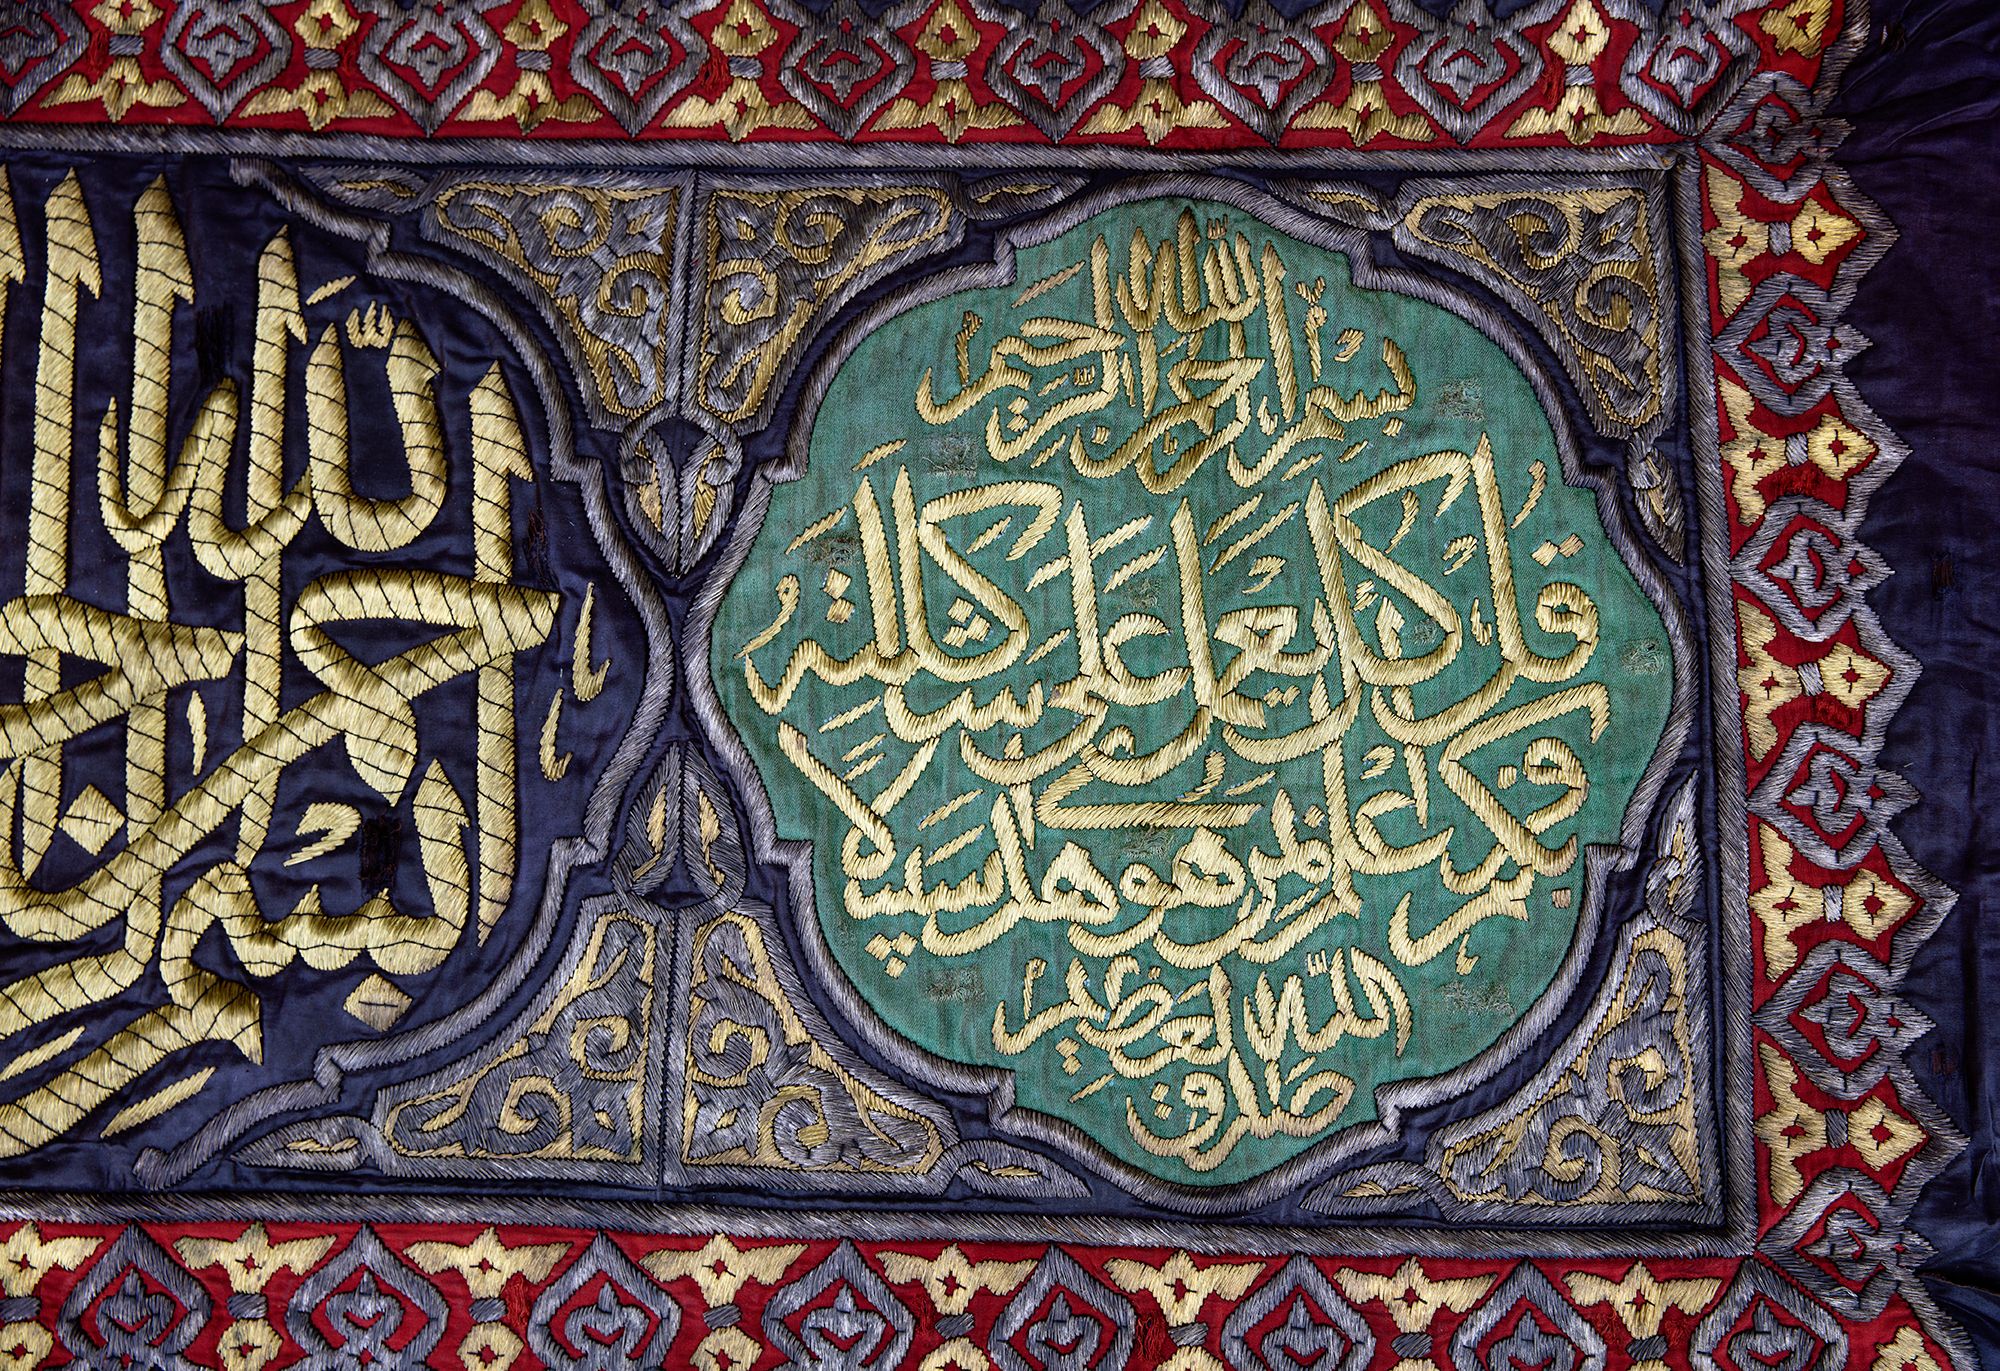 بسم الله الرحمن الرحيم
قل كل يعمل على شاكلته
فربكم أعلم بمن هو أهدى سبيلا
صدق الله العظيم
بسم الله